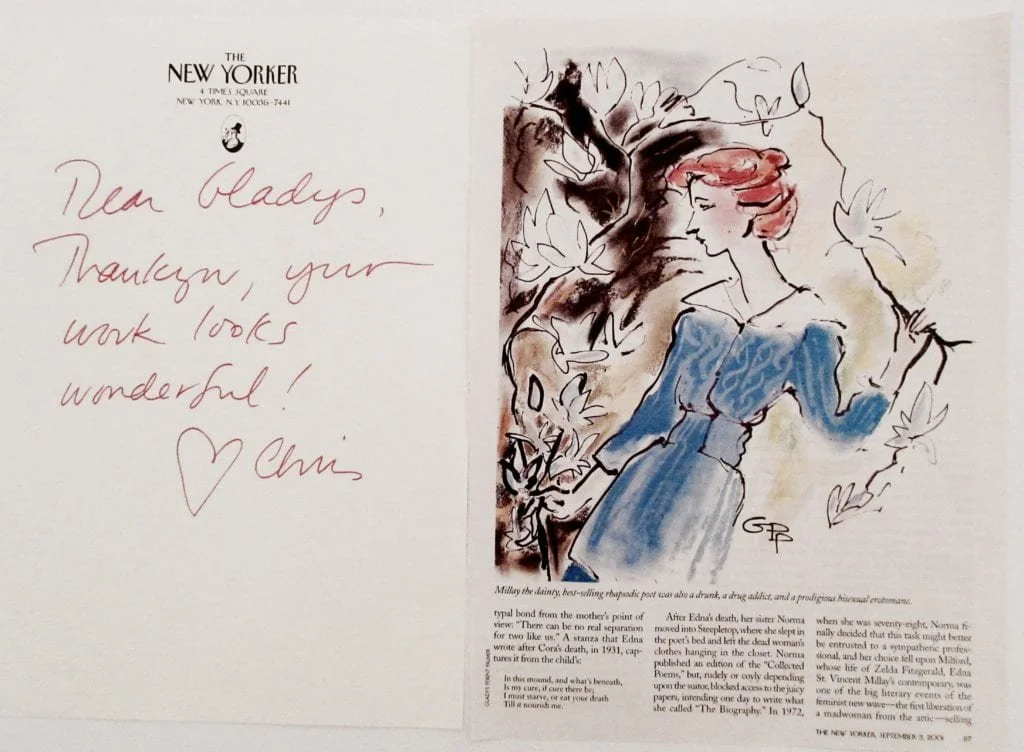 THE
NEW YORKER
4 TIMES SQUARE
NEW YORK, N.Y. 10036-7441
Dear Gladys,
Thankyou, your
work looks
wonderful!
♡ Chris
GPP
Millay the dainty, best-selling rhapsodic poet was also a drunk, a drug addict, and a prodigious bisexual erotomane.
typal bond from the mother's point of
view: "There can be no real separation
for two like us." A stanza that Edna
wrote after Cora's death, in 1931, cap-
tures it from the child's:
In this mound, and what's beneath,
Is my cure, if cure there be;
I must starve, or eat your death
Till it nourish me.
GLADYS PERINT PALMER
After Edna's death, her sister Norma
moved into Steepletop, where she slept in
the poet's bed and left the dead woman's
clothes hanging in the closet. Norma
published an edition of the "Collected
Poems," but, rudely or coyly depending
upon the suitor, blocked access to the juicy
papers, intending one day to write what
she called "The Biography." In 1972,
when she was seventy-eight, Norma fi-
nally decided that this task might better
be entrusted to a sympathetic profes-
sional, and her choice fell upon Milford,
whose life of Zelda Fitzgerald, Edna
St. Vincent Millay's contemporary, was
one of the big literary events of the
feminist new wave—the first liberation of
a madwoman from the attic—selling
THE NEW YORKER, SEPTEMBER 3, 2001 87